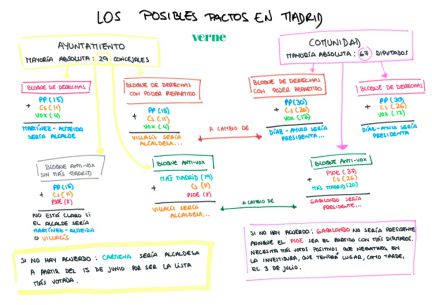 LOS POSIBLES PACTOS EN MADRID
verne
AYUNTAMIENTO
MAYORÍA ABSOLUTA: 29 CONCEJALES
BLOQUE DE DERECHAS
PP (15)
+
Cs (11)
+
VOX (4)
MARTÍNEZ-ALMEIDA
SERÍA ALCALDE
BLOQUE DE DERECHAS
CON PODER REPARTIDO
PP (15)
+
Cs (11)
+
VOX (4)
VILLACÍS SERÍA
ALCALDESA...
BLOQUE ANTI-VOX
SIN MÁS MADRID
PP (15)
+
Cs (11)
+
PSOE (8)
NO ESTÁ CLARO SI
EL ALCALDE SERÍA
MARTÍNEZ-ALMEIDA
O VILLACÍS
BLOQUE ANTI-VOX
MÁS MADRID (19)
+
Cs (11)
+
PSOE (8)
VILLACÍS SERÍA
ALCALDESA...
SI NO HAY ACUERDO: CARMENA SERÍA ALCALDESA
A PARTIR DEL 15 DE JUNIO POR SER LA LISTA
MÁS VOTADA.
A CAMBIO DE
A CAMBIO DE
COMUNIDAD
MAYORÍA ABSOLUTA: 67 DIPUTADOS
BLOQUE DE DERECHAS
CON PODER REPARTIDO
PP (30)
+
Cs (26)
+
VOX (12)
DÍAZ-AYUSO SERÍA
PRESIDENTA...
BLOQUE DE DERECHAS
PP (30)
+
Cs (26)
+
VOX (12)
DÍAZ-AYUSO SERÍA
PRESIDENTA
BLOQUE ANTI-VOX
PSOE (37)
+
Cs (26)
+
MÁS MADRID (20)
GABILONDO SERÍA
PRESIDENTE...
SI NO HAY ACUERDO: GABILONDO NO SERÍA PRESIDENTE
AUNQUE EL PSOE SEA EL PARTIDO CON MÁS DIPUTADOS.
NECESITA MÁS VOTOS POSITIVOS QUE NEGATIVOS EN
LA INVESTIDURA, QUE TENDRÁ LUGAR, COMO TARDE,
EL 3 DE JULIO.